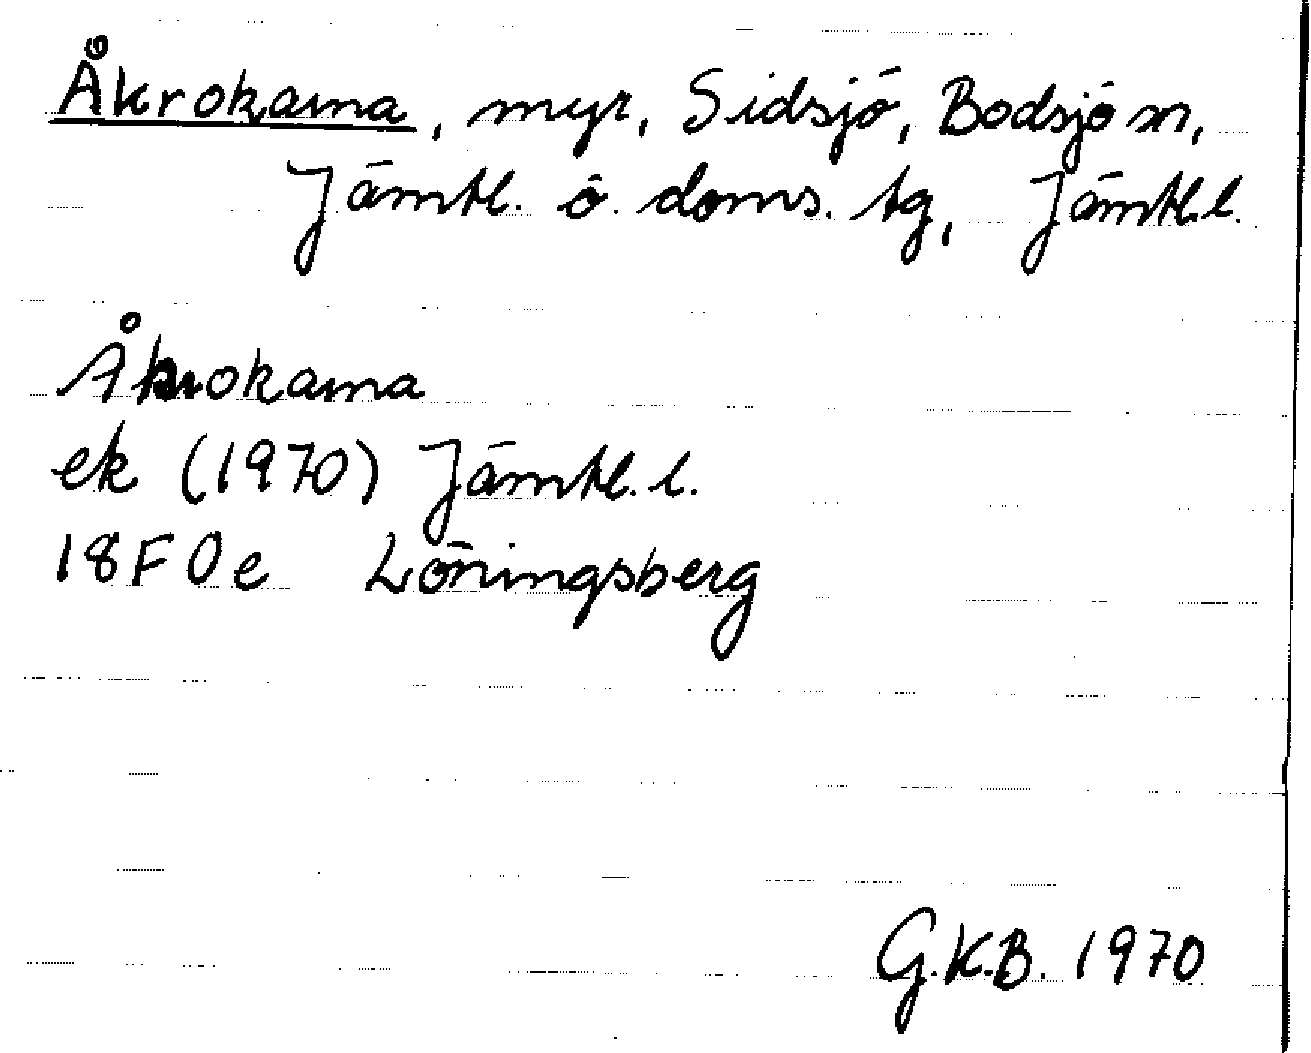 Åkrokarna, myr, Sidsjö, Bodsjö sn,
Jämtl. ö. doms. tg, Jämtl.l.
Åkrokarna
ek (1970) Jämtl. l.
18F 0e Löningsberg
G.K.B. 1970